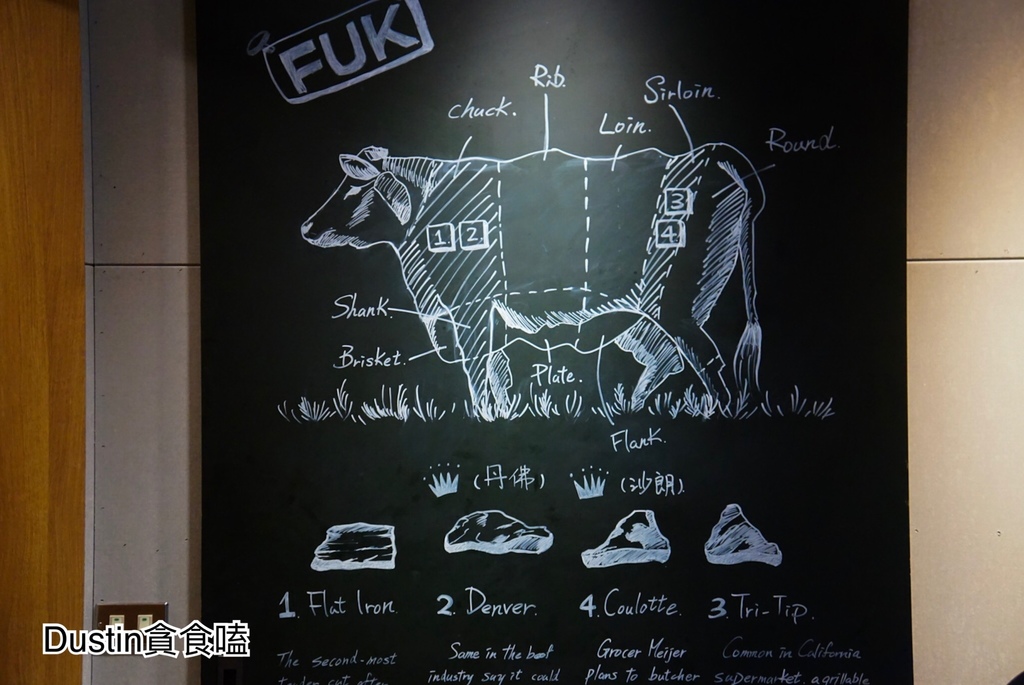 FUK
Rib.
Sirloin.
chuck.
Loin.
Round.
3
1 2
4
Shank
Brisket.
Plate.
Flank.
(丹佛) (沙朗).
1. Flat Iron. 2. Denver. 4. Coulotte. 3. Tri-Tip.
The second-most Some in the beef Grocer Meijer Common in California
tender cut after industry say it could plans to butcher supermarket, a grillable
Dustin貪食嗑